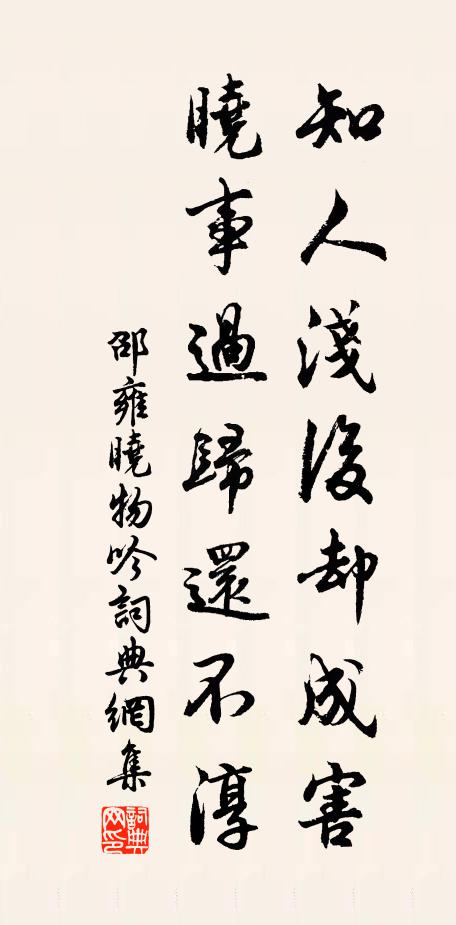 知人淺後却成害
曉事過歸還不淳
邵雍曉物吟詞典網集
詞典网印